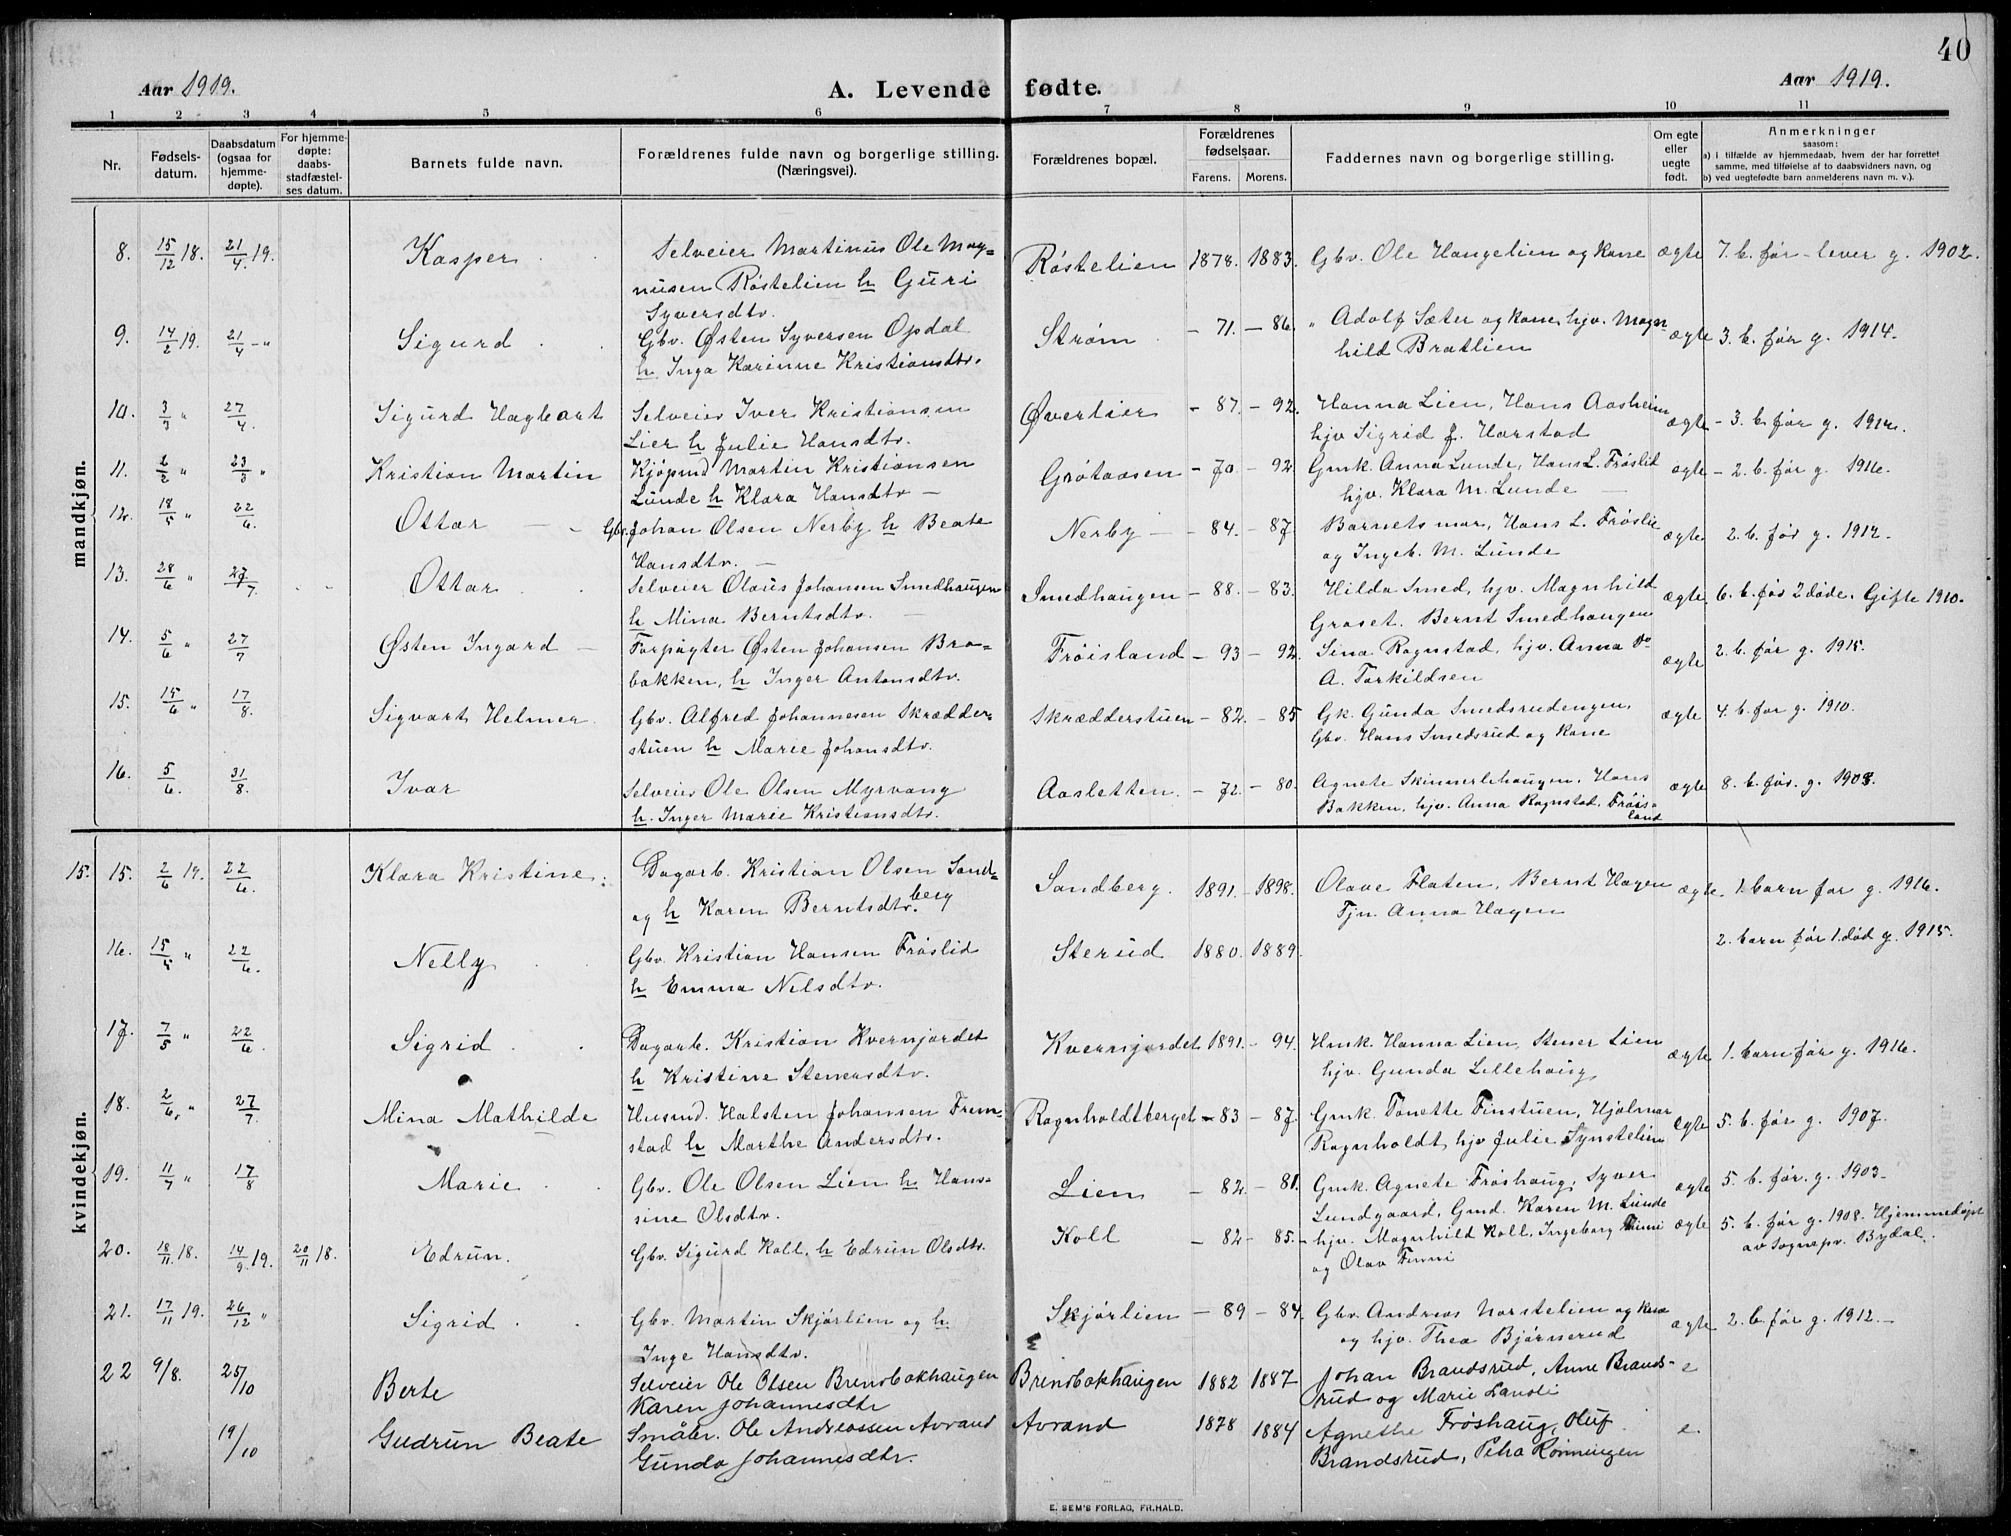 40
Aar 1919. A. Levende fødte. Aar 1919.
1 2 3 4 5 6 7 8 9 10 11
Nr. Fødsels-datum. Daabsdatum (ogsaa for hjemme-døpte). For hjemme-døpte: daabs-stadfæstel-ses datum. Barnets fulde navn. Forældrenes fulde navn og borgerlige stilling. (Næringsvei). Forældrenes bopæl. Forældrenes fødselsaar. Farens. Morens. Faddernes navn og borgerlige stilling. Om egte eller uegte født. Anmerkninger saasom: a) i tilfælde av hjemmedaab, hvem der har forrettet samme, med tilføielse af to daabsvidners navn, og b) ved uegtefødte barn anmelderens navn m. v.).
mandkjøn.
8. 15/12 18. 21/4. 19. Kasper Selveier Martinus Ole Mag- Røstelien 1878. 1883. Gbv. Ole Haugelien og kone ægte 7. b. før - lever g. 1902.
nusen Røstelien h Guri
Syversdtr.
9. 14/2 19. 21/4 - " Sigurd Gbv. Østen Syversen Opdal Strøm - 71. - 86. " Adolf Sæter og kone, hjv. Magn- ægte 3. b. før g. 1914.
h Inga Karinne Kristiansdtr. hild Bratlien
10. 3/3 " 27/4. Sigurd Hagbart Selveier Iver Kristiansen Øverlier - 87. - 92. Hanna Lien, Hans Aasheim ægte - 3. b. før g. 1914.
Lier h Julie Hansdtr. hjv Sigrid J. Harstad
11. 2/2 " 23/3 " Kristian Martin Kjøpmd Martin Kristiansen Grøtaasen - 70 - 92. Gmk. Anna Lunde, Hans L. Frøslid ægte - 2. b. før g. 1916.
Lunde h Klara Hansdtr - hjv. Klara M. Lunde
12. 18/5 " 22/6. Ottar Gbv. Johan Olsen Nerby h Beate Nerby - 84. - 87 Barnets mor, Hans L. Frøslie ægte 2. b. før g. 1912.
Hansdtr. - og Ingeb. M. Lunde
13. 28/6 " 27/7. Ottar Selveier Olaus Johansen Smedhaugen Smedhaugen - 88. - 83. Hilda Smed, hjv. Magnhild ægte. 6. b. før 2 døde. Gifte 1910.
h Mina Berntsdtr. Graset. Bernt Smedhaugen
14. 5/6 " 27/7 Østen Ingard Forpagter Østen Johansen Bra- Frøisland - 93 - 92. Sina Rognstad, hjv. Anna Do ægte 2. b. før g. 1915.
bakken, h Inger Antonsdtr. A. Torkildsen
15. 15/6 " 17/8. Sigvart Helmer. Gbv. Alfred Johannesen Skrædder- Skrædderstuen - 82. - 85 Gk. Gunda Smedsrudengen, ægte 4. b. før g. 1910.
stuen h Marie Johansdtr. Gbv. Hans Smedsrud og kone
16. 5/6. 31/8. Ivar Selveier Ole Olsen Myrvang Aasletten. - 72. - 80. Agnete Skinnerlihaugen, Hans ægte 8. b. før. g. 1903.
h. Inger Marie Kristiansdtr. Bakken, hjv. Anna Rognstad, Frøis-
land
kvindekjøn.
15. 15. 2/6 19. 22/6. Klara Kristine. Dagarb. Kristian Olsen Sand- Sandberg. 1891. - 1898. Olave Flaten, Bernt Hagen ægte. 1. barn før g. 1916.
og h Karen Berntsdtr. berg Tjn. Anna Hagen
16. 15/5 " 22/6. Nelly Gbv. Kristian Hansen Frøslid Sterud 1880. 1889. 2. barn før 1. død g. 1915.
h Emma Nelsdtr.
17. 7/5 " 22/6. Sigrid Dagarb. Kristian Kvernjordet Kvernjordet 1891. - 94. Hmk. Hanna Lien, Stener Lien ægte 1. barn før g. 1916.
h Kristine Stenersdtr. hjv. Gunda Lillehaug
18. 2/6. " 27/7. Mina Mathilde Husmd. Halsten Johansen Frem- Rognholdtberget - 83 - 87. Gmk. Tonette Finstuen, Hjalmar egte 5. b. før g. 1907.
stad h Marthe Andersdtr. Rognholdt, hjv Julie Synstelien
19. 11/7 " 17/8 Marie Gbv. Ole Olsen Lien h Han- Lien - 82. - 81. Gmk. Agnete Frøshaug, Syver ægte 5. b. før. g. 1903.
sine Olsdtr. Lundgaard, Gmd. Karen M. Lunde
20. 18/11 18. 14/9 19. 20/11 18. Edrun. Gbv. Sigurd Koll. h Edrun Olsdtr. Koll - 82 - 85. - hjv. Magnhild Koll, Ingeborg Finni ægte 5. b. før g. 1908. Hjemmedøpt
og Olav Finni av Sognepr. Bydal.
21. 17/11 19. 26/12 " Sigrid Gbv. Martin Skjørlien og h. Skjørlien - 89 - 84. Gbv. Andreas Norstelien og kone ægte 2. b. før g. 1912. -
Inge Hansdtr. og hjv. Thea Bjørnerud
22 9/8. 25/10 Berte Selveier Ole Olsen Brendbakhaugen Brendbakhaugen 1882 1887 Johan Brandsrud, Anne Brands- e
Karen Johannesdtr rud og Marie Landli
19/10 Gudrun Beate Småbr. Ole Andreassen Avrand Avrand 1878 1884 Agnethe Frøshaug, Oluf e.
Gunda Johannesdtr. Brandsrud, Petra Rønningen
E. SEM'S FORLAG, FR.HALD.